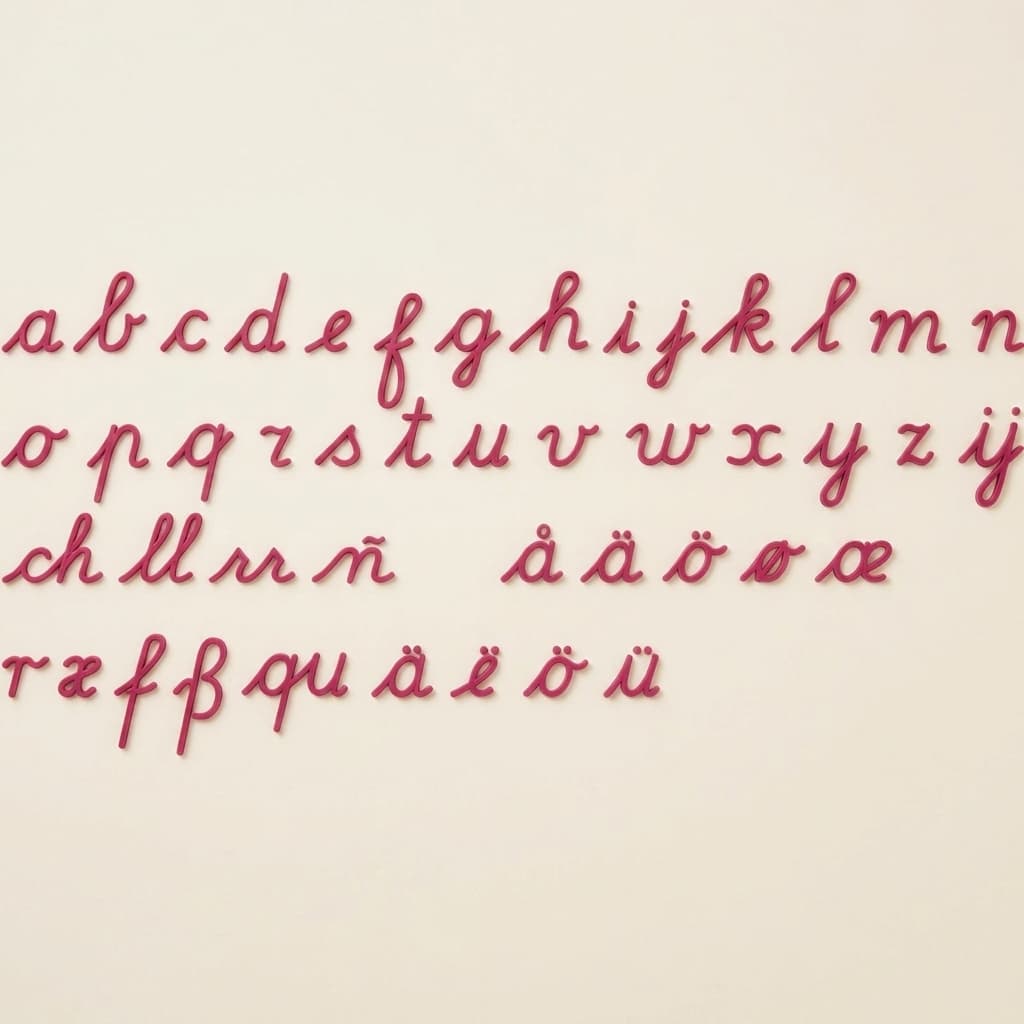 a b c d e f g h i j k l m n
o p q r s t u v w x y z ij
ch ll rr ñ å ä ö ø œ
r æ ſ ß qu ä ë ö ü